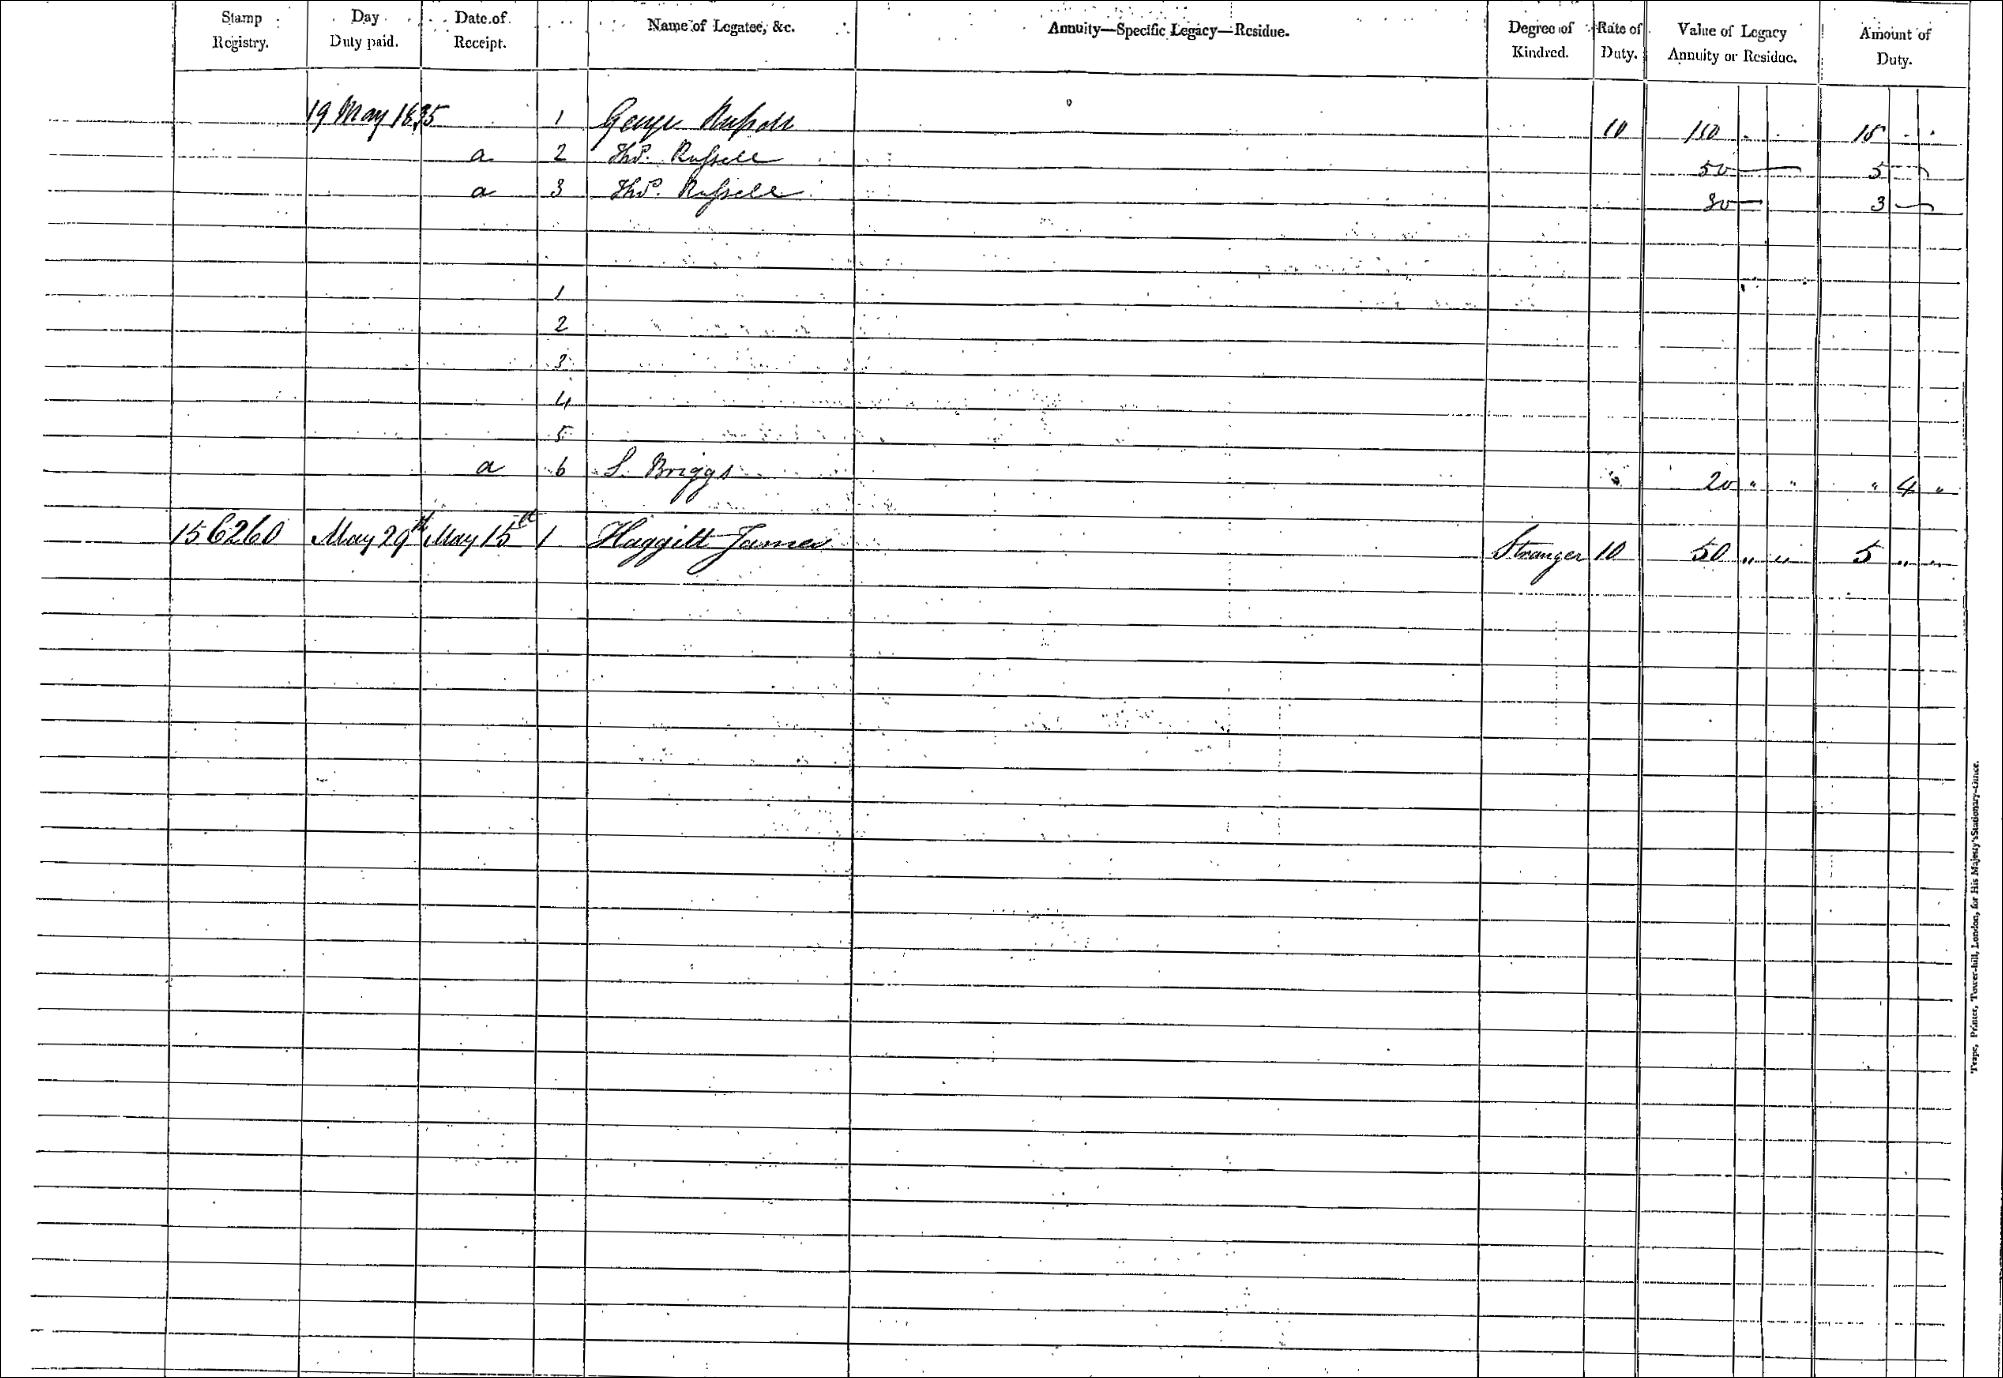 Stamp Registry. Day Duty paid. Date of Receipt. Name of Legatee, &c. Annuity—Specific Legacy—Residue. Degree of Kindred. Rate of Duty. Value of Legacy Annuity or Residue. Amount of Duty.
19 May 1835 1 George Russell 10
a 2 Thos. Russell 50 — 5 —
a 3 Thos. Russell 30 — 3 —
1
2
3
4
5
a 6 S. Briggs 20 " " " 4 "
156260 May 29th May 15th 1 Haggitt James Stranger 10 50 " " 5 " "
Printer, Tower-hill, London, for His Majesty's Stationary-Office.